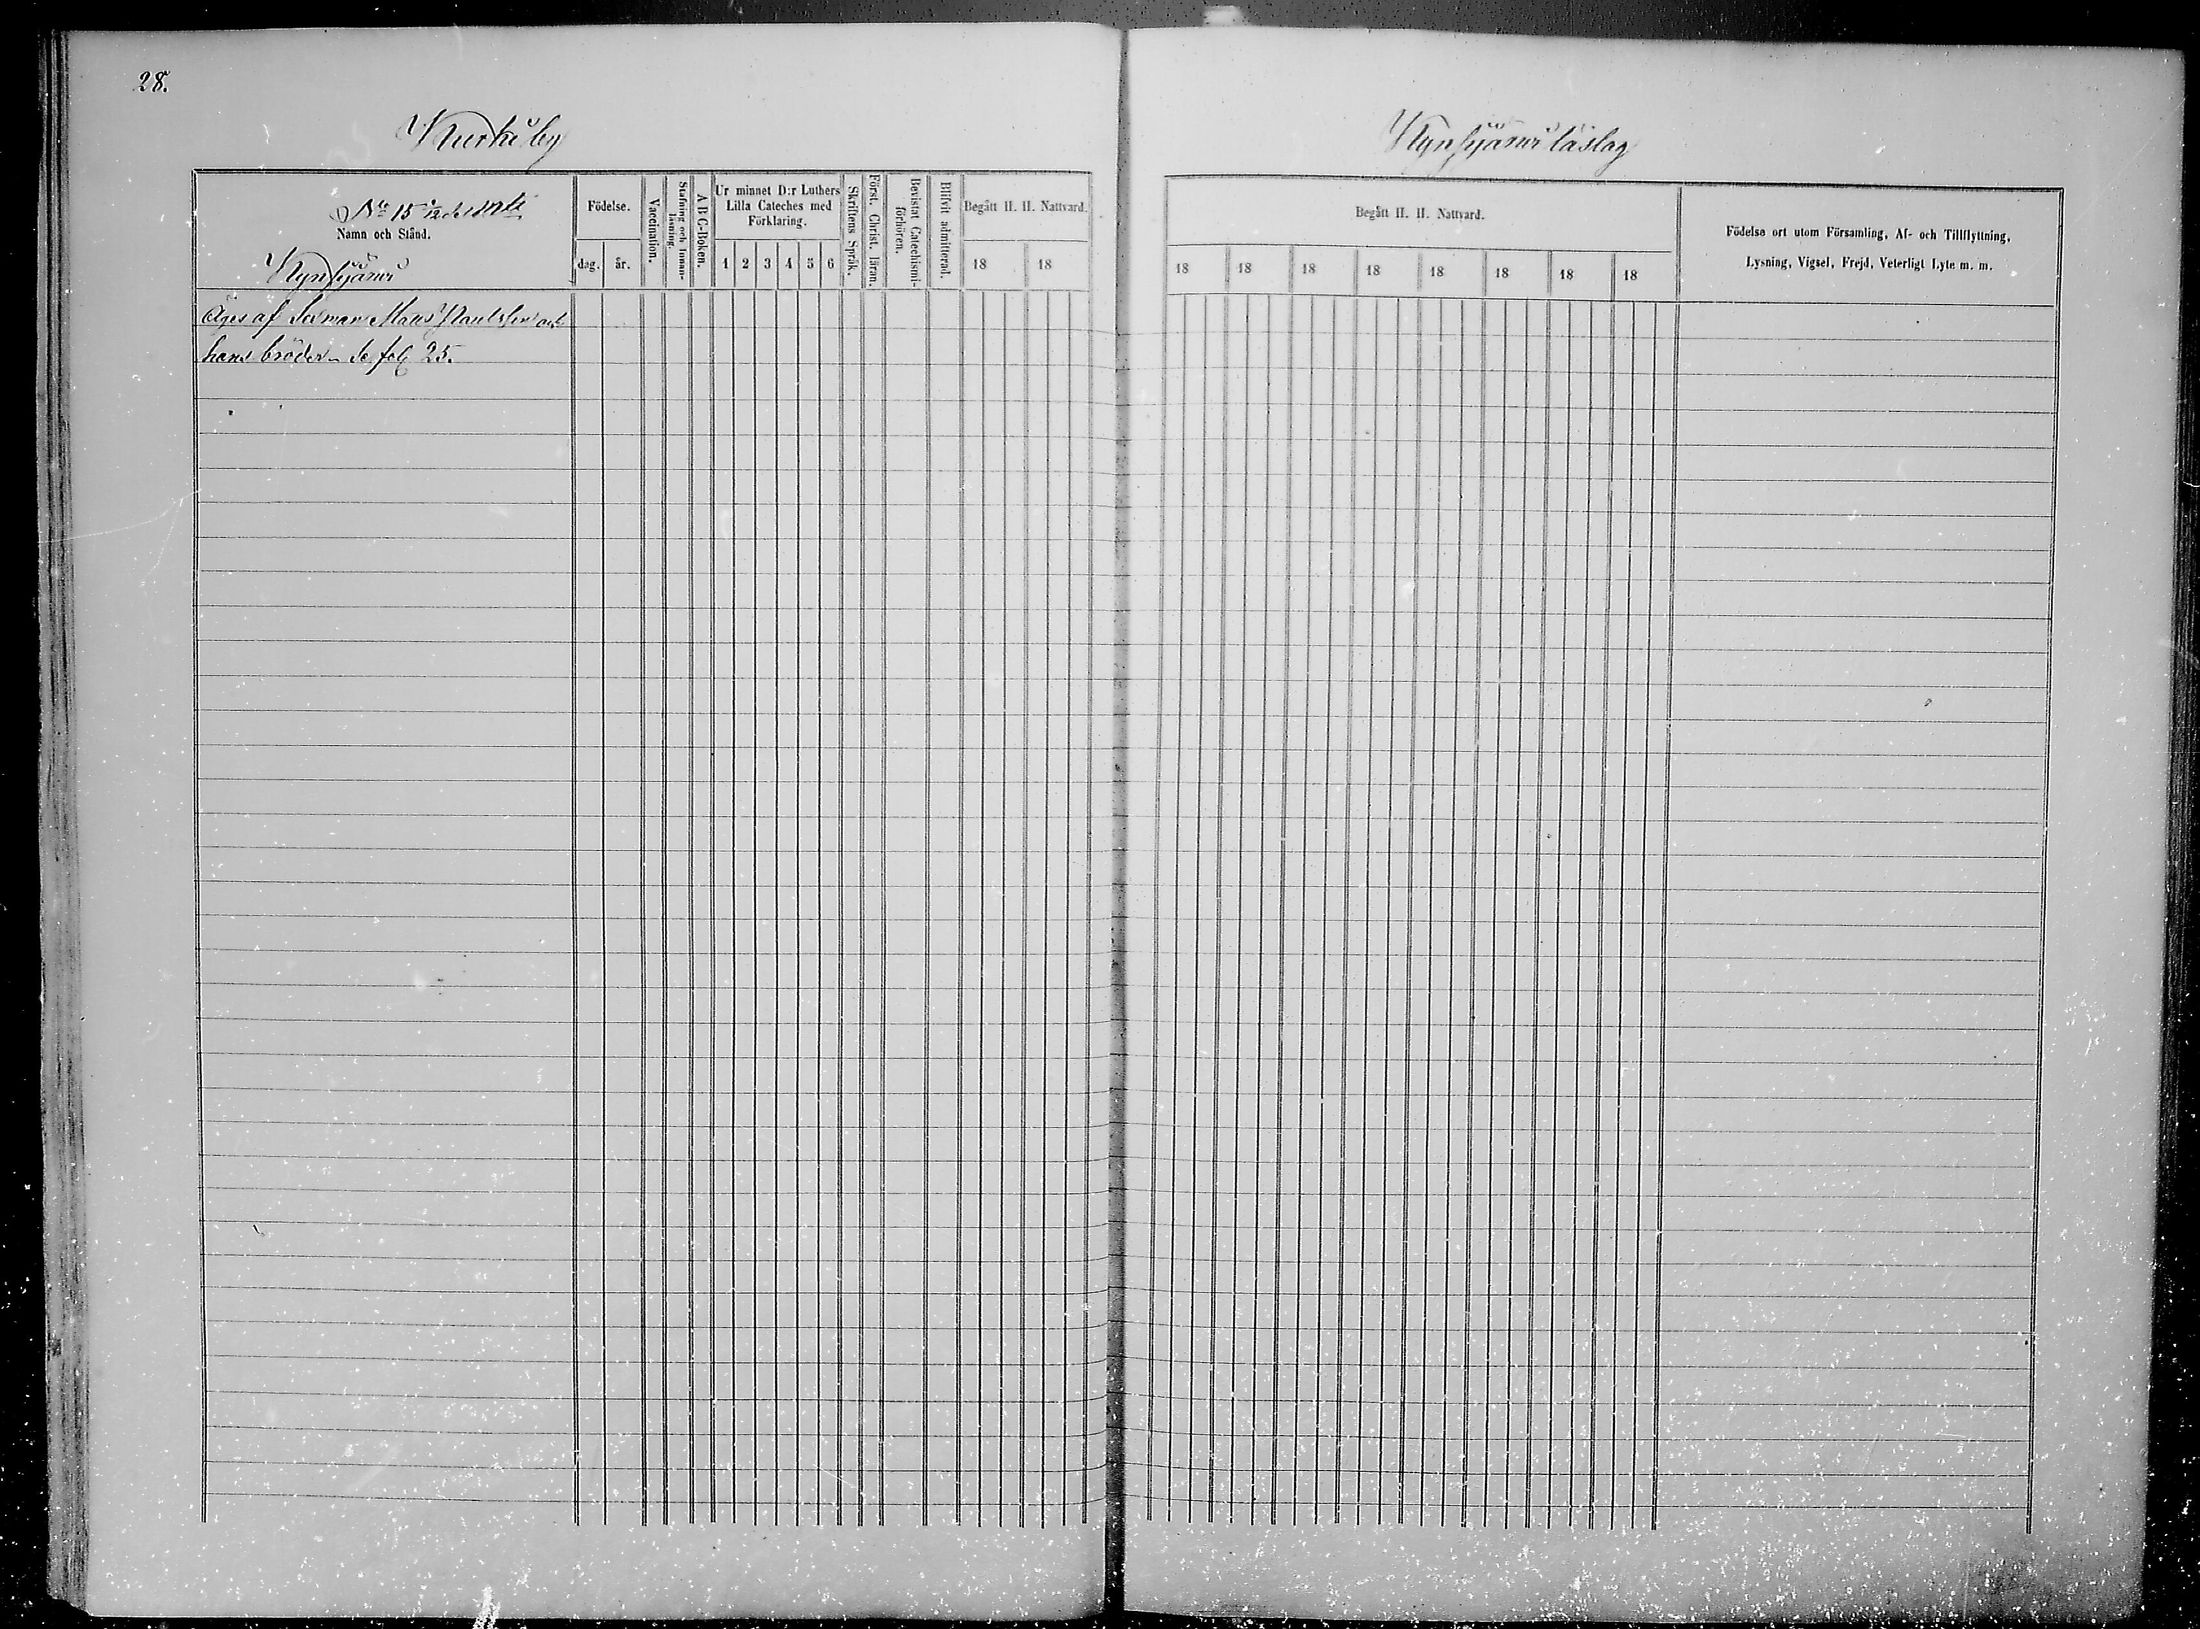 28.
Kurki by
Kynsijärvi läslag
No 15
Namn och Stånd.
Kynsijärvi
Födelse.
dag. år.
Vaccination.
Stafning och Innan-läsning.
A B C-Boken.
Ur minnet D:r Luthers
Lilla Cateches med
Förklaring.
1 2 3 4 5 6
Skriftens Språk.
Först. Christ. läran.
Bevistat Catechismi-förhören.
Blifvit admitterad.
Begått H. H. Nattvard.
18 18
Begått H. H. Nattvard.
18 18 18 18 18 18 18 18
Födelse ort utom Församling, Af- och Tillflyttning,
Lysning, Vigsel, Frejd, Veterligt Lyte m. m.
Äges af Sexman Mats och
hans bröder se fol 25.